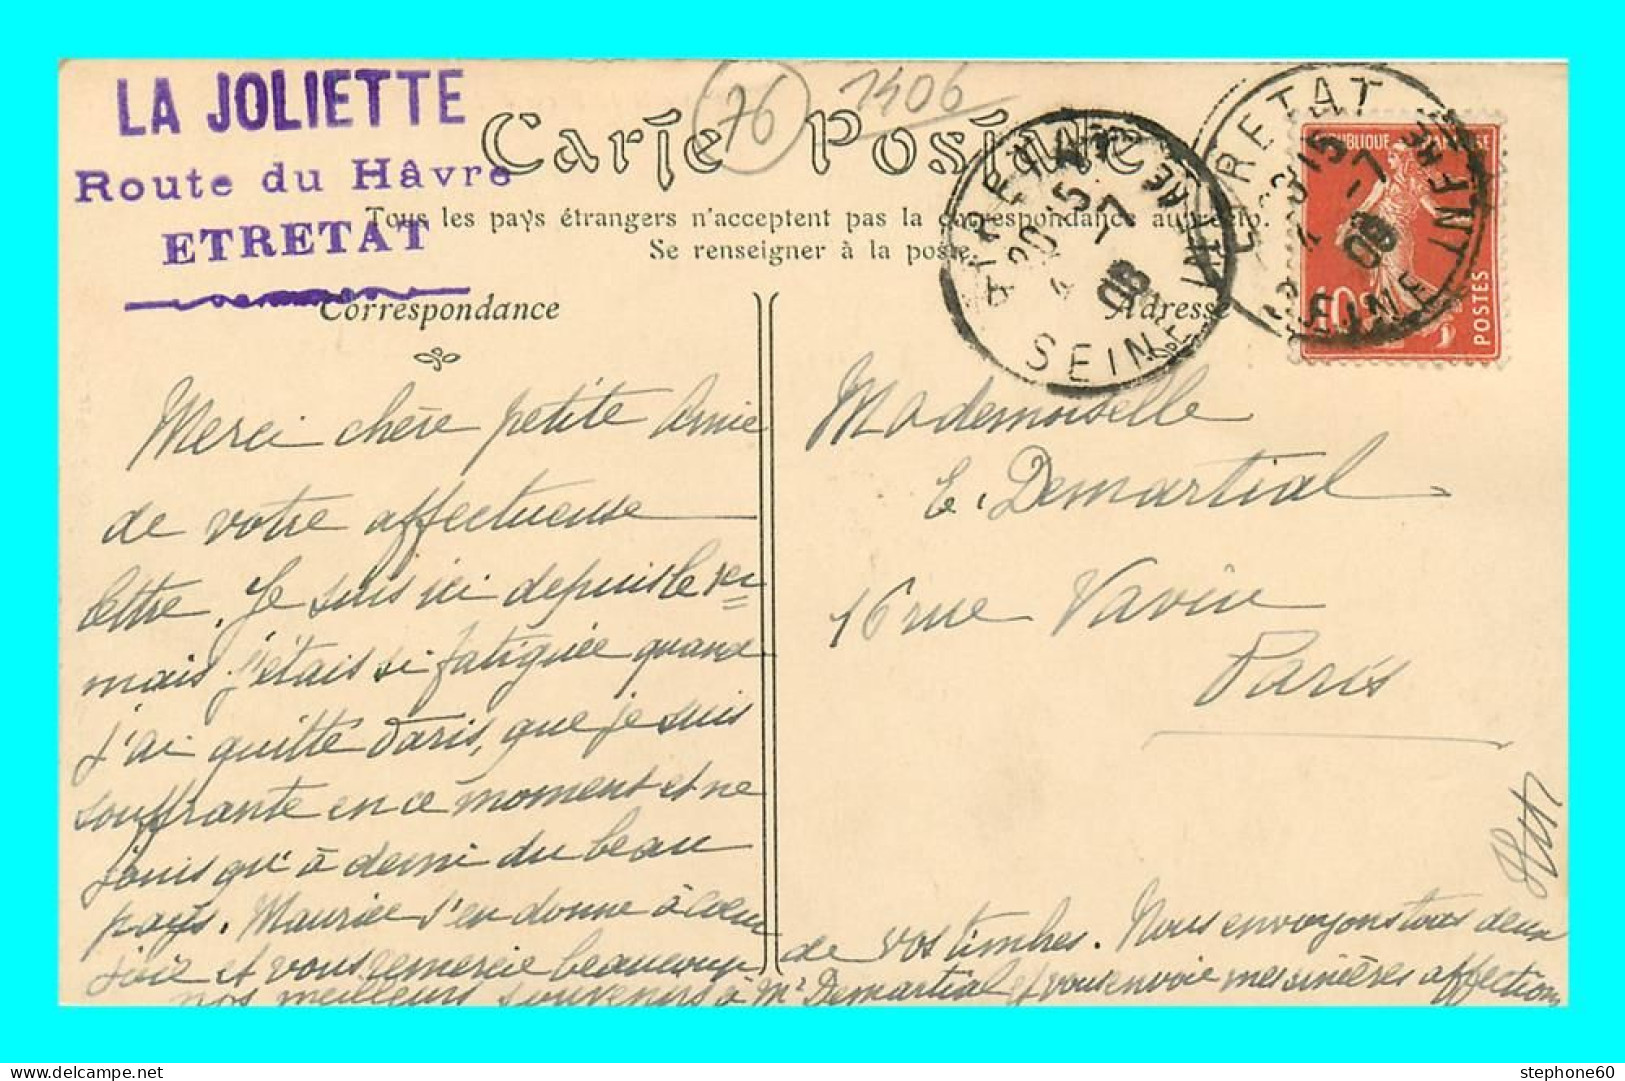 LA JOLIETTE
Route du Hâvre
ETRETAT
76
1406
Carte Postale
Tous les pays étrangers n'acceptent pas la correspondance au recto.
Se renseigner à la poste.
ETRETAT
SEINE INFRE
15
-7
08
ETRETAT
15
-7
08
SEINE INFRE
RÉPUBLIQUE FRANÇAISE
10
POSTES
Correspondance
Adresse
Merci chère petite Amie
de votre affectueuse
lettre. Je suis ici depuis le 1er
mais j'étais si fatiguée quand
j'ai quitté Paris, que je suis
souffrante en ce moment et ne
jouis qu'à demi du beau
pays. Maurice s'en donne à coeur
joie et vous remercie beaucoup
de vos timbres. Nous envoyons tous deux
nos meilleurs souvenirs à Mr Demartial et vous envoie mes sincères affections
Mademoiselle
E. Demartial
16 rue Vavin
Paris
stephone60